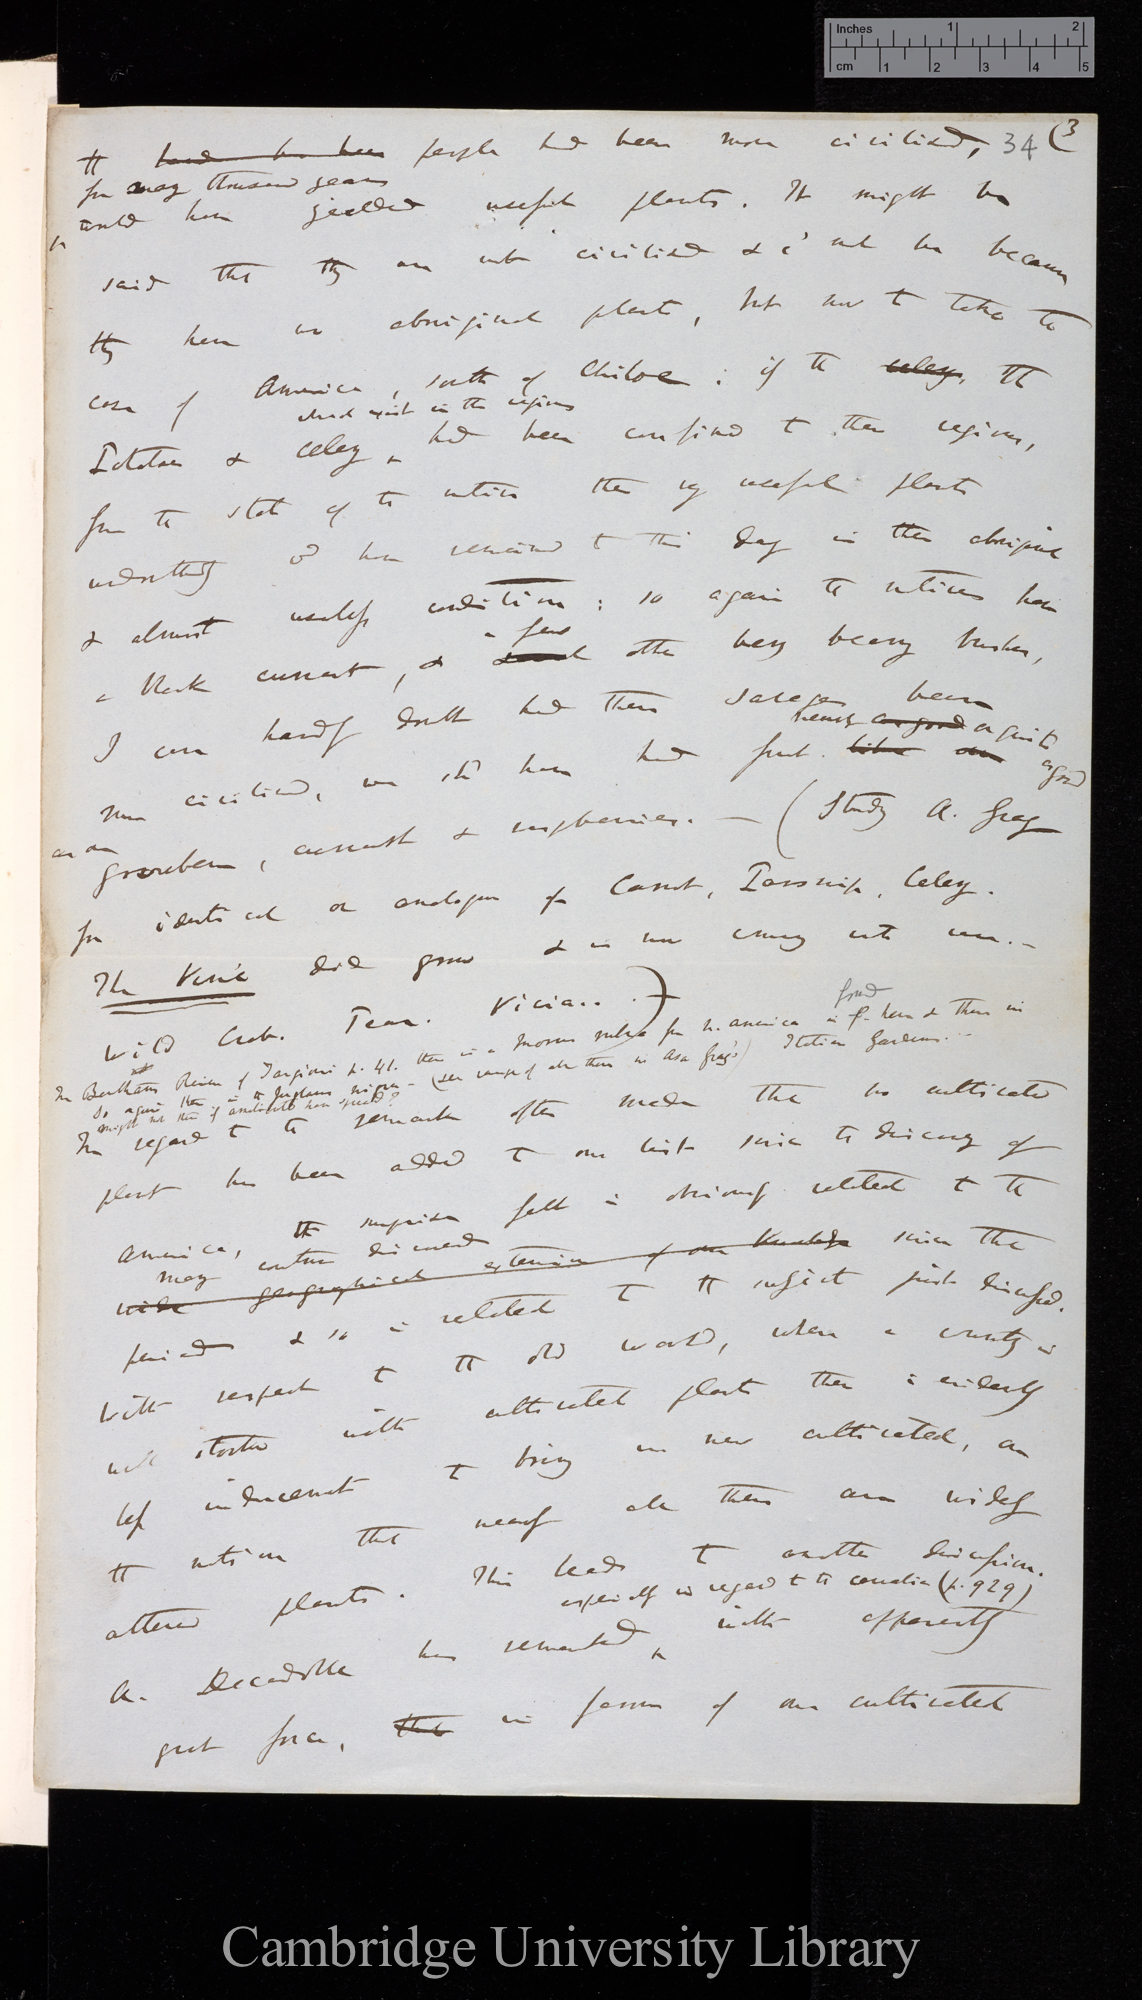 Inches 1 2
cm 1 2 3 4 5
34 (3
the had he been people had been more civilised,
for many thousand years
would have yielded useful plants. It might be
said that they are not civilised & cd not be because
they have no aboriginal plants, but now to take the
case of America, south of Chiloe: if the celery, the
which exist in the regions
Potatoes & Celery had been confined to these regions,
from the state of the natives these useful plants
undoubtedly wd have remained to this day in their aboriginal
& almost useless condition: so again the natives have
a few
a black currant, & several other berry bearing bushes,
I can hardly doubt had these savages been
nearly as good or quite as good
more civilised, we shd have had fruit like our
as our
gooseberries, currants & raspberries. — (Study A. Gray
for identical or analogues of Carrot, Parsnip, Celery.
The did grow & is now coming into use. —
Wild Crab. Pear. Vicia..)
found
In Benthams Review of Targioni p. 41. there is a Morus rubra from N. America is here & there in
Italian Gardens. —
So again there is the Juglans nigra — (see range of all these in Asa Gray's)
might not these if anciently have spread?
In regard to the remark often made that no cultivated
plant has been added to our list since the discovery of
America, the surprise felt is obviously related to the
many centuries discovered
wide geographical extension of our knowledge since that
period & so is related to the subject just discussed.
With respect to the old world, when a country is
well stocked with cultivated plants there is evidently
less inducement to bring in new cultivated, on
the notion that nearly all these are widely
altered plants. This leads to another discussion.
especially in regard to the cerealia (p. 929)
A. Decandolle has remarked, with apparently
great force, that in favour of our cultivated
Cambridge University Library